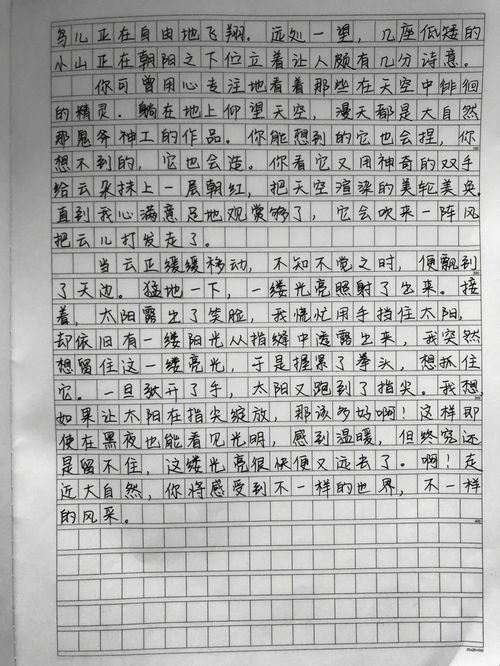 鸟儿正在自由地飞翔。远处一望，几座低矮的
小山正在朝阳之下位立着让人颇有几分诗意。
你可曾用心专注地看着那些在天空中徘徊
的精灵。躺在地上仰望天空，漫天都是大自然
那鬼斧神工的作品。你能想到的它也会捏，你
想不到的，它也会造。你看它又用神奇的双手
给云朵抹上一层朝红，把天空渲染的美轮美奂。
直到我心满意足地观赏够了，它会吹来一阵风
把云儿打发走了。
当云正缓缓移动，不知不觉之时，便飘到
了天边。猛地一下，一缕光亮照射了出来。接
着，太阳露出了笑脸，我慌忙用手挡住太阳，
却依旧有一缕阳光从指缝中透露出来，我突然
想留住这一缕亮光，于是握紧了拳头，想抓住
它。一旦张开了手，太阳又跑到了指尖。我想
如果让太阳在指尖绽放，那该多好啊！这样即
使在黑夜也能看见光明，感到温暖，但终究还
是留不住，这缕光亮很快便又远去了。啊！走
近大自然，你将感受到不一样的世界，不一样
的风采。